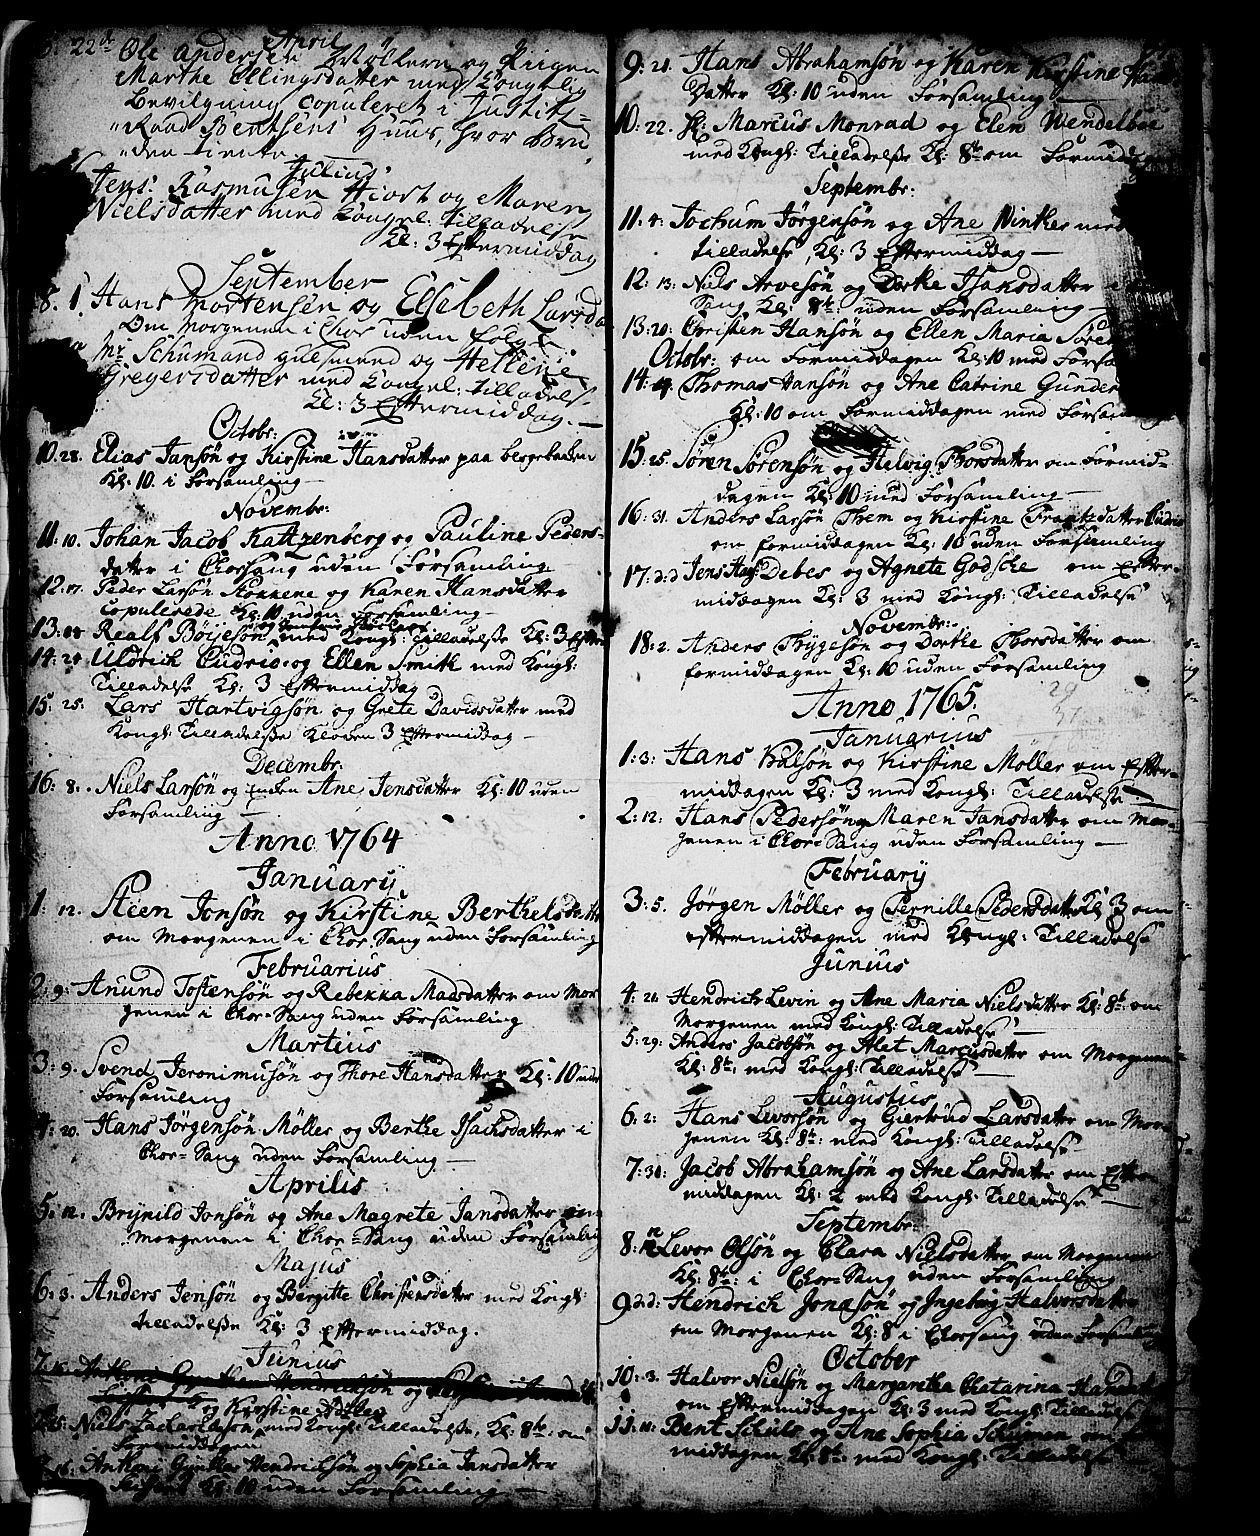 April
22d Ole Andersen Møllern og Pigen
Marthe Ellingsdatter med Kongelig
Bevilgning copuleret i Justitz-
Raad Bentsens Huus, hvor Bru
den tiente.
Julius
Jens Rasmusen Hiort og Maren
Nielsdatter med Kongel: Tilladelse
Kl: 3 Eftermiddag
September
8. 1. Hans Mortensen og Elsebeth Larsda
Om Morgenen i Chor uden folge
Mr Schumand og Hellene
Gregersdatter med Kongel: Tilladelse
Kl: 3 Eftermiddag. —
Octobr:
10. 28. Elias Jansøn og Kirstine Hansdatter paa
Kl: 10. i Forsamling —
Novembr:
11: 10. Johan Jacob Kattzenberg og Pauline Peders-
datter i Chorsang uden Forsamling —
12: 17. Peder Larsøn Stokkene og Karen Hansdatter
copulerede Kl: 10 uden Forsamling —
13: Realf Böyeson med Kongl: Tilladelse Kl: 3 Efter
14: 24 Uldrich Cudrio og Ellen Smith med Kongl:
Tilladelse Kl: 3 Eftermiddag
15: 25. Lars Hartvigsøn og Grete Davidsdatter med
Kongl: Tilladelse Kloken 3 Eftermiddag —
Decembr:
16: 8. Niels Larsøn og Enken Ane Jensdatter Kl: 10 uden
Forsamling —
Anno 1764
January
1: 12. Steen Jonsøn og Kirstine Berthelsdatter
om Morgenen i Chor-Sang uden Forsamling
Februarius
2: 9: Anund Tostensøn og Rebekka Madsdatter om Mor
genen i Chor-Sang uden Forsamling
Martius
3: 9. Svend Jeronimusøn og Thore Hansdatter Kl: 10 uden
Forsamling
4: 20. Hans Jørgensøn Møller og Berthe Isachsdatter i
Chor-Sang uden Forsamling —
Aprilis
5: 12. Brynild Jonsøn og Ane Magrete Jansdatter om
Morgenen i Chor-Sang uden Forsamling
Majus
6: 3. Anders Jensøn og Bergitte Christensdatter med Kongl:
Tilladelse Kl: 3 Eftermiddag.
Junius
og Kirstine
Niels Zachariasøn med Kongl: Tilladelse, Kl: 8te: om
Formiddagen
16: Anthoni Gynther Hendrichsøn og Sophia Jansdatter
Kl: 10 uden Forsamling —
9: 21. Hans Abrahamsøn og Karen Kirstine
Datter Kl: 10 uden Forsamling —
10: 22. Hr: Marcus Monrad og Elen Wendelboe
med Kongl: Tilladelse Kl: 8te om Formiddag
Septembr:
11. 4: Jochum Jørgensøn og Ane Winther med
Tilladelse, Kl: 3 Eftermiddag —
12: 13: Niels Arvesøn og Dorthe Isaksdatter i
Sang Kl: 8te: uden Forsamling —
13: 20: Christen Hansøn og Ellen Maria Søren
Octobr: om Formiddagen Kl: 10 med Forsam
14: 4. Thomas Jansøn og Ane Catrine Gunder
Kl: 10 om Formiddagen med Forsam
15. 25. Søren Sørensøn og Helvig Thorsdatter om Formid-
dagen Kl: 10 med Forsamling —
16: 31. Anders Larsøn Them og Kirstine Frantzdatter Cudrio
om formiddagen Kl: 10 uden Forsamling
17: Jens Debes og Agnete Godsche om Efter-
middagen Kl: 3 med Kongl: Tilladelse
Novembr:
18: 2. Anders Thygeson og Dorthe Thorsdatter om
formiddagen Kl: 10 uden Forsamling
Anno 1765.
Januarius
1: 3: Hans Halsøn og Kirstine Møller om Efter-
middagen Kl: 3 med Kongl: Tilladelse —
2: 12: Hans Pedersøn og Maren Jansdatter om Mor-
genen i Chor-Sang uden Forsamling —
February
3: 5. Jørgen Møller og Pernille Pedersdatter Kl: 3 om
eftermiddagen med Kongl: Tilladelse
Junius
4: 21: Hendrich Levin og Ane Maria Nielsdatter Kl: 8te: om
Morgenen med Kongl: Tilladelse —
5: 29: Anders Jacobsøn og Alet Marcusdatter om Morgenen
Kl: 8te: med Kongl: Tilladelse —
Augustus
6: 2: Hans Levorsøn og Giertrud Larsdatter om Mor
genen Kl: 8te: med Kongl: Tilladelse
7: 30: Jacob Abrahamsøn og Ane Larsdatter om Efter
middagen Kl: 2 med Kongl: Tilladelse
Septembr:
8: 12 Levor Olsøn og Clara Nielsdatter om Morgenen
Kl: 8te: i Chor-Sang uden Forsamling
9 Hendrich Jonæsøn og Ingeborg Halvorsdatter
om Morgenen Kl: 8 i Chorsang uden Forsamling
October
10: 3. Halvor Nielsøn og Margaretha Chatarina Hansdatter
om Eftermiddagen Kl: 3 med Kongl: Tilladelse
11: 11: Bent Schulz og Ane Sophia Schuman om
middagen Kl: 8te: med Kongl: Tilladelse —